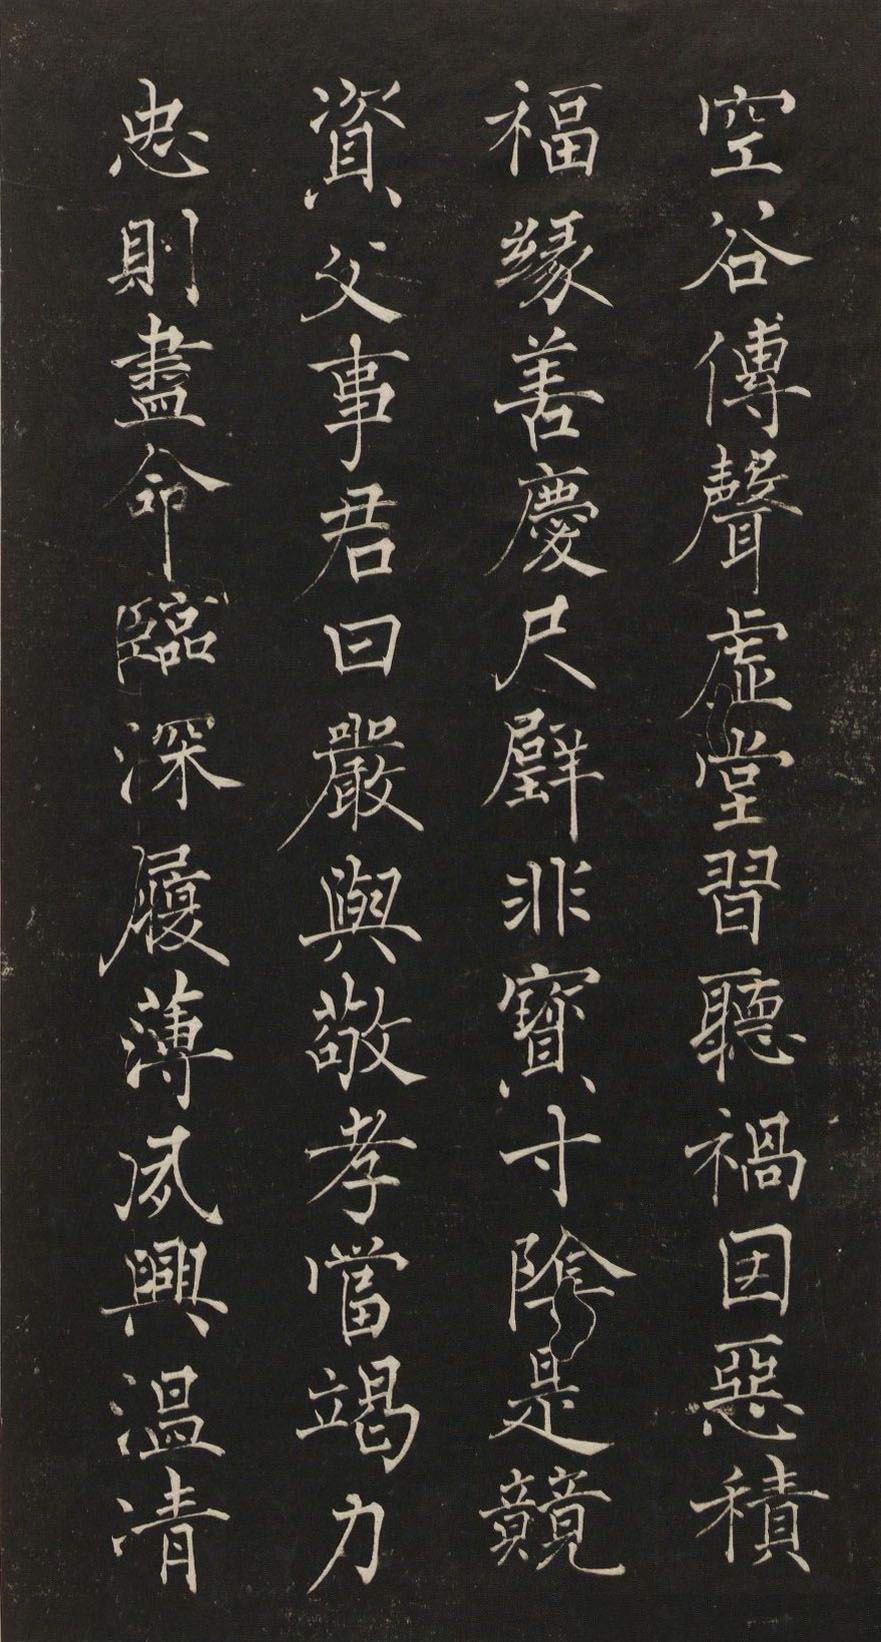 空谷傳聲虛堂習聽禍因惡積
福緣善慶尺璧非寶寸陰是競
資父事君曰嚴與敬孝當竭力
忠則盡命臨深履薄夙興溫凊